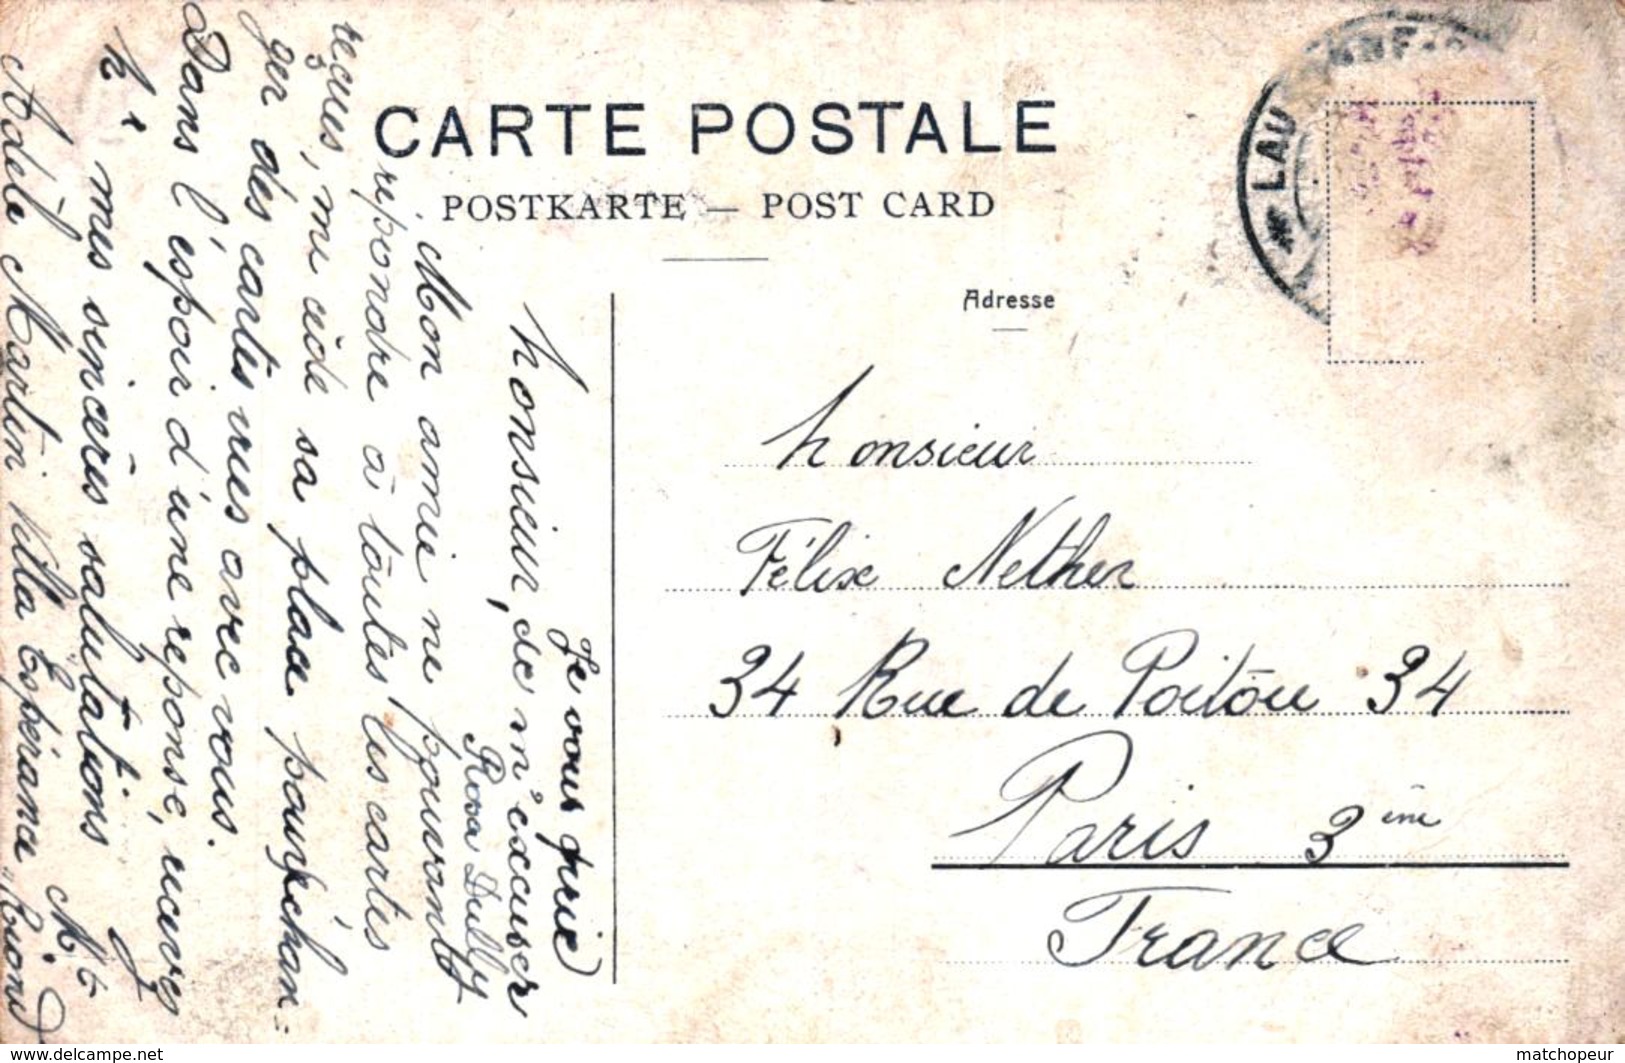 CARTE POSTALE
POSTKARTE — POST CARD
Adresse
Monsieur
Félix Nether
34 Rue de Poitou 34
Paris 3ème
France
LAU
Monsieur, de m'excuser
Je vous prie)
Mon amie ne pouvant
Rosa Dully
répondre à toutes les cartes
reçues, me cède sa place pour échan=
ger des cartes vues avec vous.
Dans l'espoir d'une reponse, recevez
M. mes sincères salutations
Adèle Martin villa "Espérance"
www.delcampe.net
matchopeur